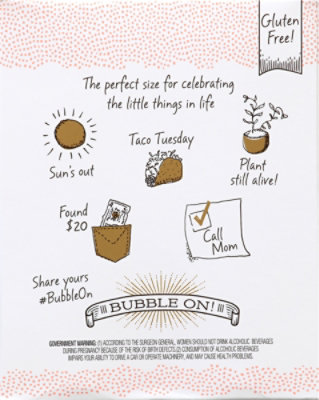 Gluten
Free!
The perfect size for celebrating
the little things in life
Taco Tuesday
Sun's out
Plant
still alive!
Found
$20
Call
Mom
Share yours
#BubbleOn
BUBBLE ON!
GOVERNMENT WARNING: (1) ACCORDING TO THE SURGEON GENERAL, WOMEN SHOULD NOT DRINK ALCOHOLIC BEVERAGES
DURING PREGNANCY BECAUSE OF THE RISK OF BIRTH DEFECTS.(2) CONSUMPTION OF ALCOHOLIC BEVERAGES
IMPAIRS YOUR ABILITY TO DRIVE A CAR OR OPERATE MACHINERY, AND MAY CAUSE HEALTH PROBLEMS.